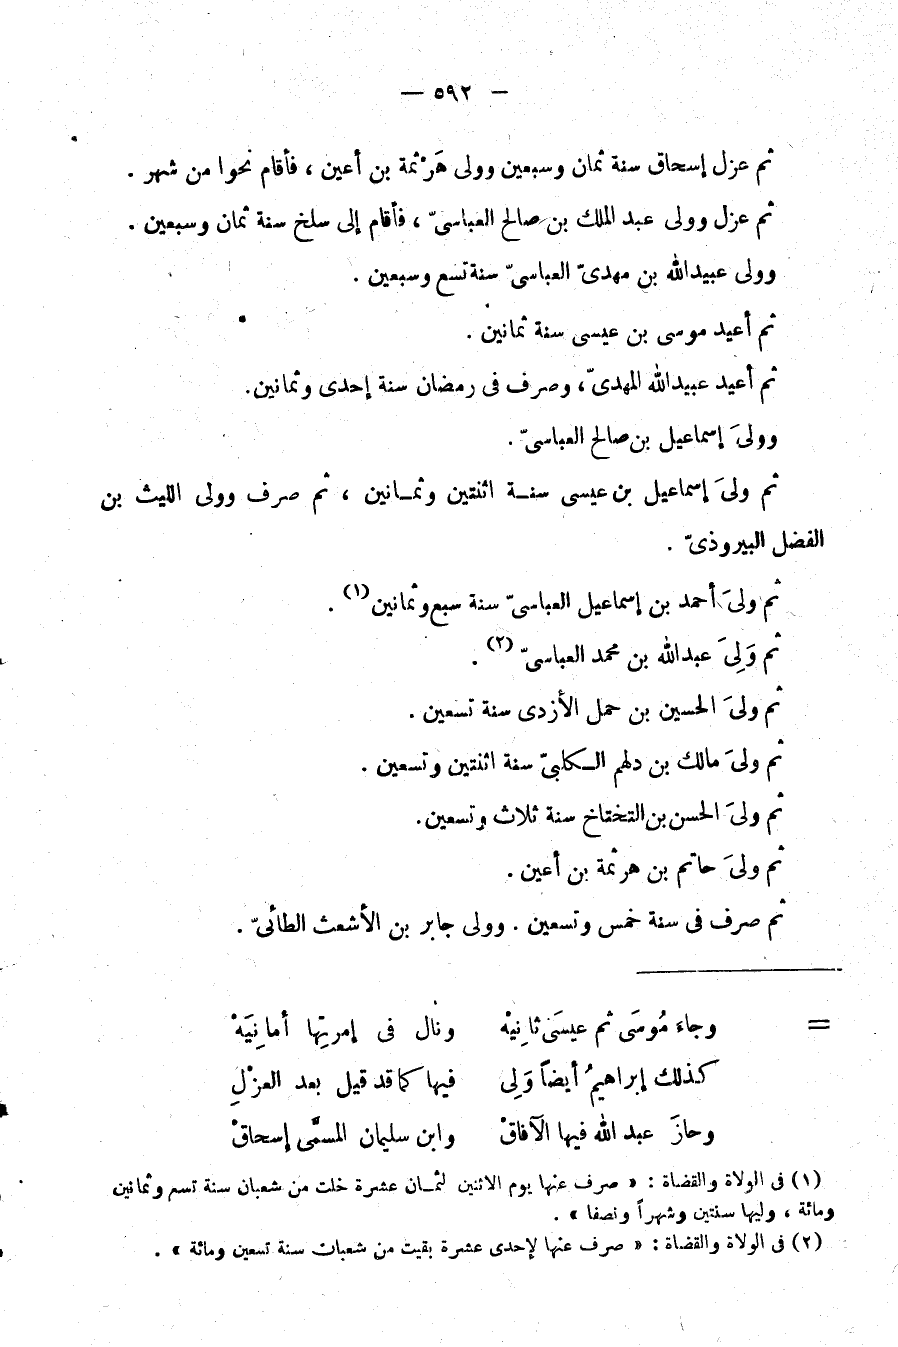 — ٥٩٢ —
ثم عزل إسحاق سنة ثمان وسبعين وولى هَرْثمة بن أعين ، فأقام نحوا من شهر .
ثم عزل وولى عبد الملك بن صالح العباسىّ ، فأقام إلى سلخ سنة ثمان وسبعين .
وولى عبيدالله بن مهدىّ العباسىّ سنة تسع وسبعين .
ثم أعيد موسى بن عيسى سنة ثمانين .
ثم أعيد عبيدالله المهدىّ ، وصرف فى رمضان سنة إحدى وثمانين .
وولىَ إسماعيل بن صالح العباسىّ .
ثم ولىَ إسماعيل بن عيسى سنـة اثنتين وثمـانين ، ثم صرف وولى الليث بن
الفضل البيروذىّ .
ثم ولىَ أحمد بن إسماعيل العباسىّ سنة سبع وثمانين (١) .
ثم وَلِىَ عبدالله بن محمد العباسىّ (٢) .
ثم ولىَ الحسين بن حمل الأزدى سنة تسعين .
ثم ولىَ مالك بن دلهم الـكلبىّ سنة اثنتين وتسعين .
ثم ولىَ الحسن بن التختاخ سنة ثلاث وتسعين .
ثم ولىَ حاتم بن هرثمة بن أعين .
ثم صرف فى سنة خمس وتسعين . وولى جابر بن الأشعث الطائىّ .
= وجاءَ مُوسَى ثم عيسَى ثانِيَهْ ونال فى إمرتِها أمانِيَهْ
كذلك إبراهيمُ أيضاً وَلِى فيها كما قد قيل بعد العزْلِ
وحازَ عبد الله فيها الآفاقْ وابن سليمان المسمَّى إسحاقْ
(١) فى الولاة والقضاة : « صرف عنها يوم الاثنين لثمـان عشرة خلت من شعبان سنة تسع وثمانين
ومائة ، وليها سنتين وشهراً ونصفا » .
(٢) فى الولاة والقضاة : « صرف عنها لإحدى عشرة بقيت من شعبان سنة تسعين ومائة » .